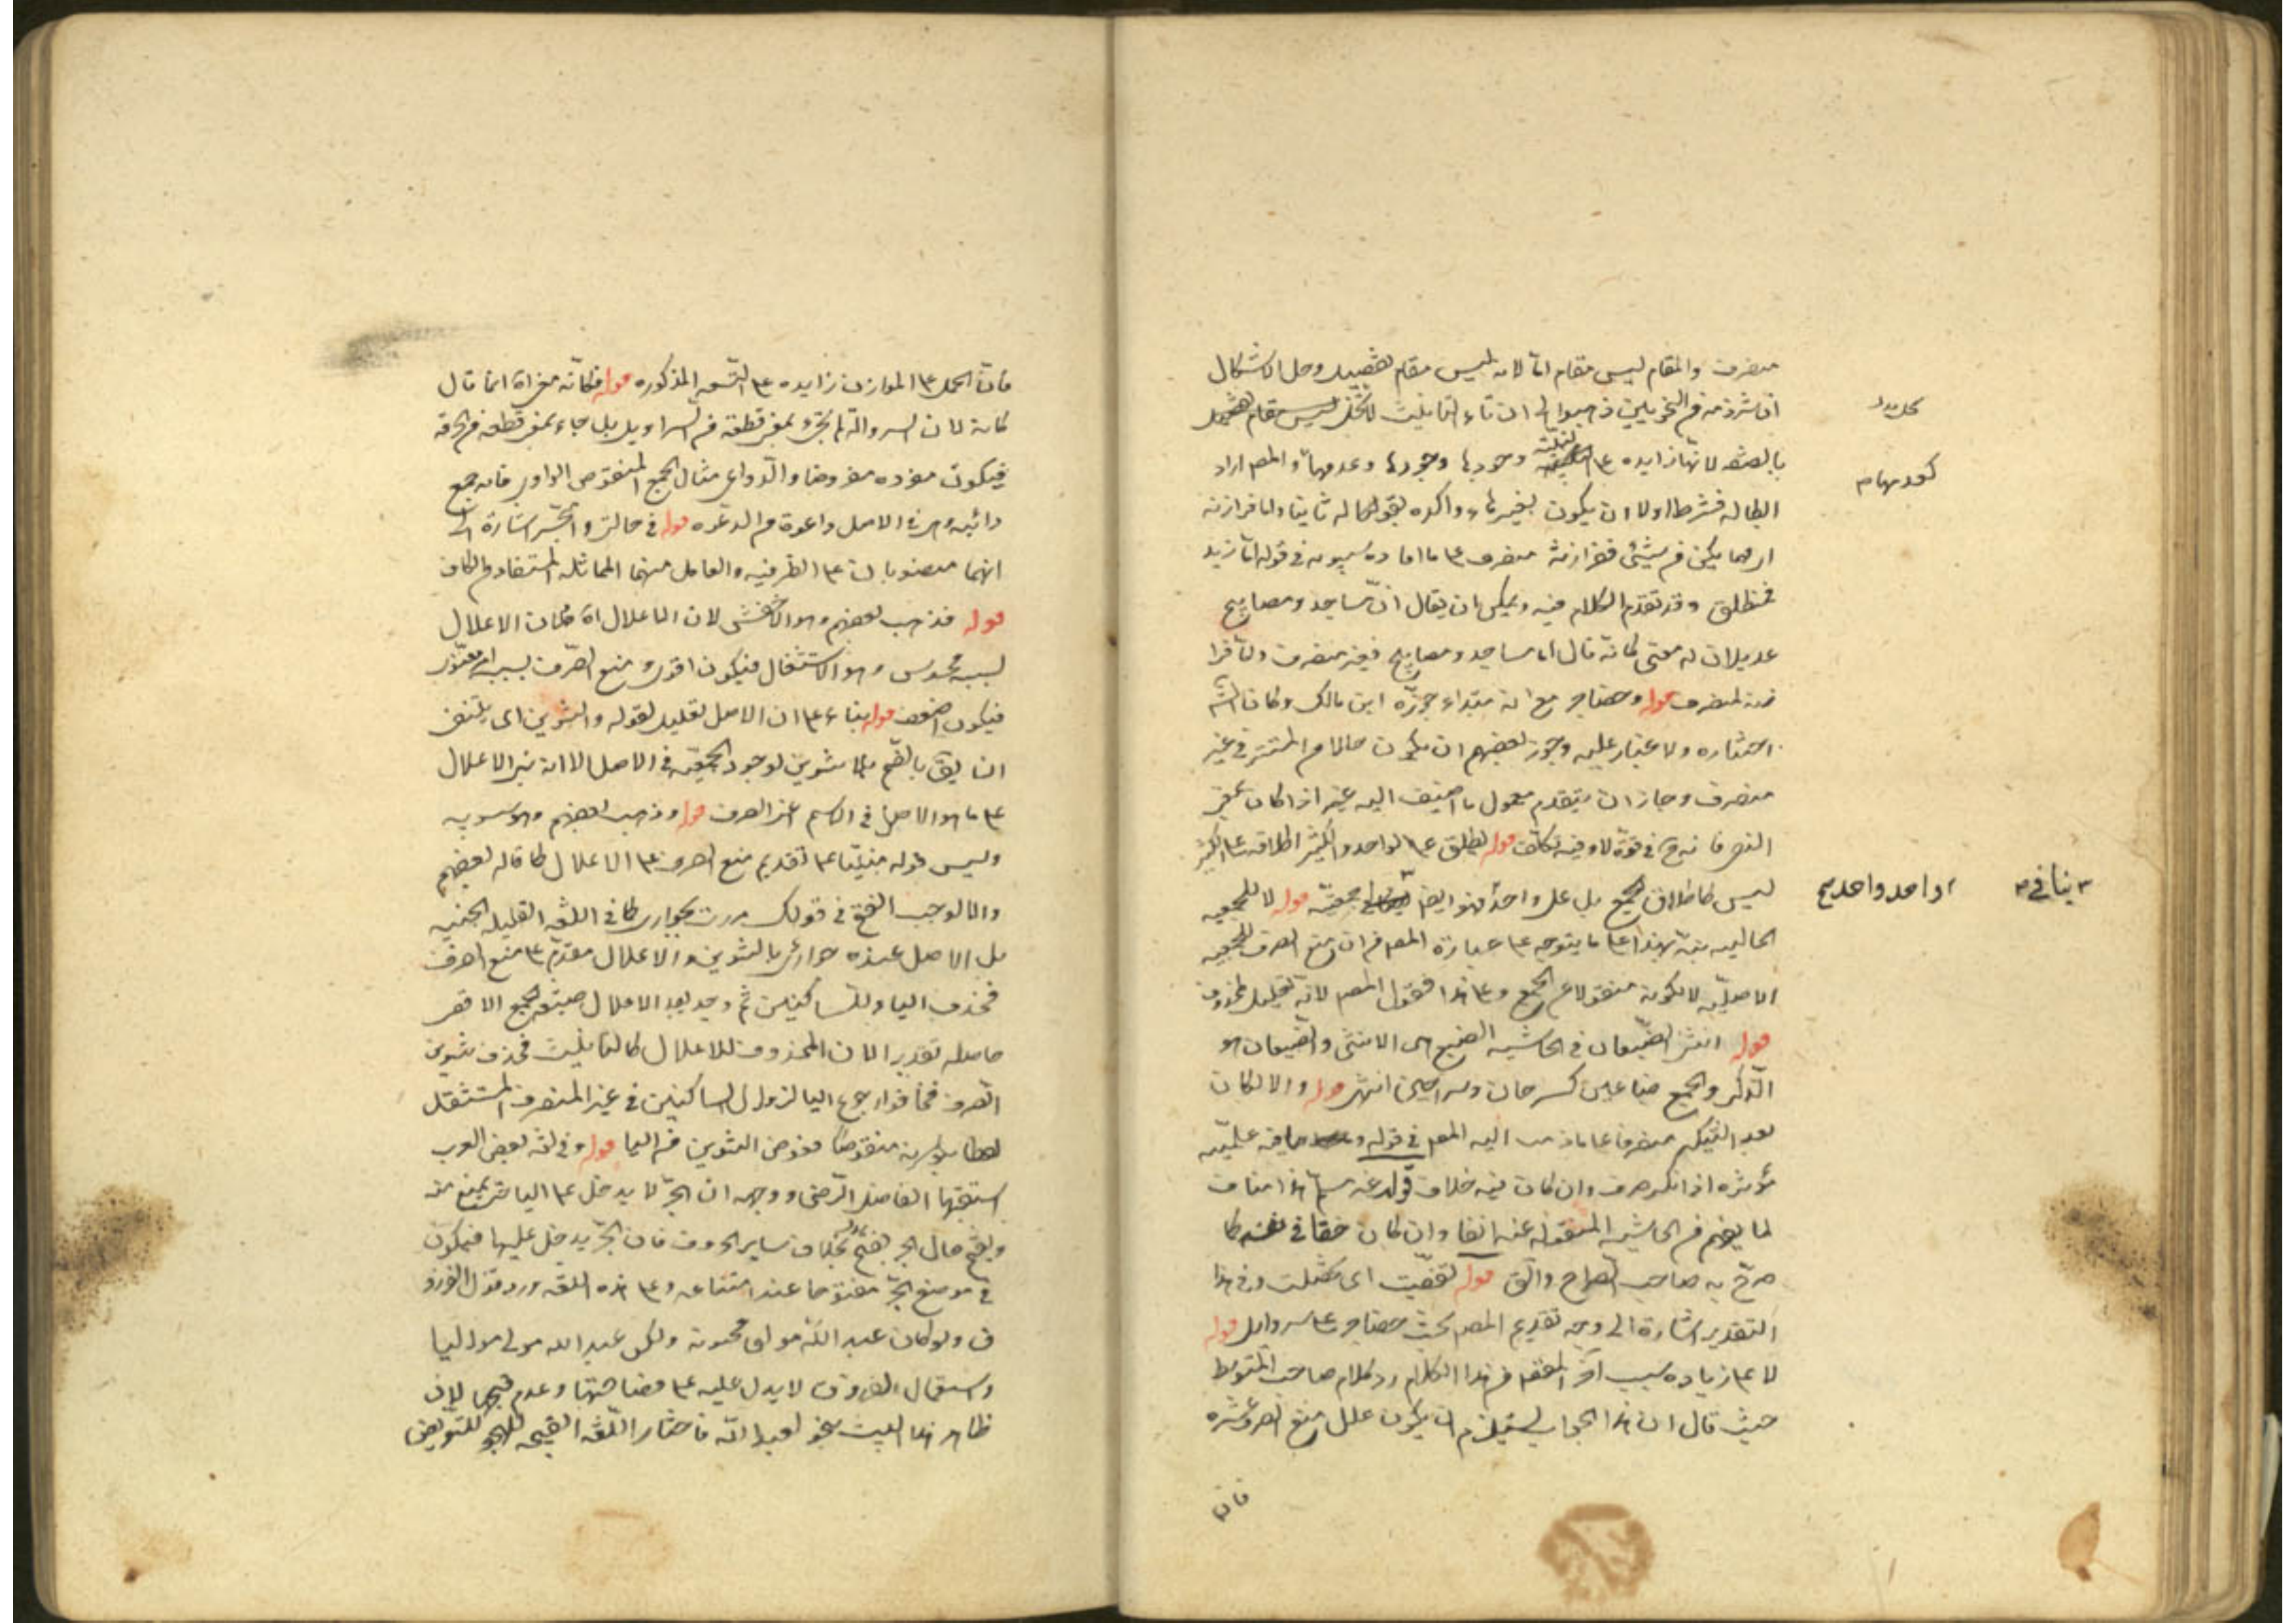 منصرف والمقام ليس مقام اما لانه ليس مقام تفصيل وحل الاشكال
ان شرذمة من النحويين ذهبوا الى ان تاء التانيث
بالصفه لانها زايده ع‍ وجودها وعدمها والمص اراد
ابطاله فشرط اولا ان يكون بغير هاء واكده بقوله ثانيا واما فرازنة
اى مهما يكن من شئ ففرازنة منصرف ع‍ ما افاده سيبويه فى قوله اما زيد
فمنطلق وقد تقدم الكلام فيه ويمكن ان يقال ان مساجد ومصابيح
عديلان له معنى كانه قال اما مساجد ومصابيح فغير منصرف واما فرا
زنة فمنصرف قوله وحضاجر مع انه مبتداء جوزه ابن مالك وكان الش
اختاره ولا غبار عليه وجوز بعضهم ان يكون حالا من المستتر فى غير
منصرف وجاز ان يتقدم معمول ما اضيف اليه غير اذا كان بمعنى
النفى فانه ح فى قوة لا وفيه تكلف قوله يطلق ع‍ الواحد والكثير اطلاقه ع‍ الكثير
ليس كاطلاق الجمع بل على واحد قوله لا للجمعيه
الحاليه نبه بهذا ع‍ ما يتوجه ع‍ عبارة المص من ان منع الصرف للجمعيه
الاصليه لا لكونه منقولا عن الجمع وع‍ هذا فقول المص لانه تعليل لمحذوف
قوله انثى الضبعان فى الحاشيه الضبع هى الانثى والضبعان هو
الذكر والجمع ضباعين كسرحان وسراحين انتهى قوله والا لكان
بعد التنكير منصرفا ع‍ ما ذهب اليه المص فى قوله وما فيه علميه
مؤثره اذا نكر صرف وان كان فيه خلاف هذا مناف
لما يفهم من الحاشيه المنقوله عنه انفا وان كان حقا فى نفسه كما
صرح به صاحب الصراح والق قوله تفصيت اى تخلصت وفى هذا
التقدير اشارة الى وجه تقديم المص بحث حضاجر ع‍ سراويل قوله
لا ع‍ زياده سبب اخر المفهم من هذا الكلام رد كلام صاحب المتوسط
حيث قال ان هذا الجواب يستلزم ان يكون علل منع الصرف عشره
فان
فان الحمل ع‍ الموازن زايده ع‍ التسعه المذكوره قوله فكانه انما قال
كانه لان السروالة لم تجئ بمعنى قطعة من السراويل بل جاء بمعنى قطعه من الخرقه
فيكون مفرده مفروضا والدواعى مثال الجمع المنقوص الواوى فانه جمع
داعيه وهى فى الاصل داعوة من الدعوه قوله فى حالتى والجر اشارة الى
انهما منصوبان ع‍ الظرفيه والعامل فيهما المماثله المستفاد من الكاف
قوله فذهب بعضهم وهو الاخفش لان الاعلال اه فكان الاعلال
بسبب محسوس وهو الاستثقال فيكون اقوى ومنع الصرف بسبب امر
فيكون اضعف قوله بناء ع‍ ان الاصل تعليل لقوله والتنوين اى
ان يق بالفتح بلا تنوين لوجود الجمعيه فى الاصل الا انه بنى الاعلال
ع‍ ما هو الاصل فى الاسم اعنى الصرف قوله وذهب بعضهم وهو سيبويه
وليس قوله مبنيا ع‍ تقديم منع الصرف ع‍ الاعلال كما قاله بعضهم
والا لوجب الفتح فى قولك مررت بجوارى كما فى اللغه القليله
بل الاصل عنده جوارى بالتنوين والاعلال مقدم ع‍ منع الصرف
فحذف الياء للساكنين ثم وجد بعد الاعلال صيغه الجمع الاقصى
حاصله تقديرا لان المحذوف للاعلال كالثابت فحذف تنوين
الصرف فخافوا رجوع الياء لزوال الساكنين فى غير المنصرف المستثقل
لفظا بكونه منقوصا فعوض التنوين من الياء قوله وفى لغه بعض العرب
استقبحها الفاضل الرضى ووجه ان الجر لا يدخل ع‍ الياء حتى يمنع منه
ويفتح حال الجر بخلاف ساير الحروف فان الجر يدخل عليها فيكون
فى موضع الجر مفتوحا عند امتناعه وع‍ هذه اللغه ورد قول الفرزد
ق ولو كان عبد الله مولى هجوته ولكن عبد الله مولى مواليا
واستعمال الفرزدق لا يدل عليه ع‍ فصاحتها وعدم قبحها لان
ظاهر هذا البيت هجو لعبد الله فاختار اللغه القبيحه للهجو